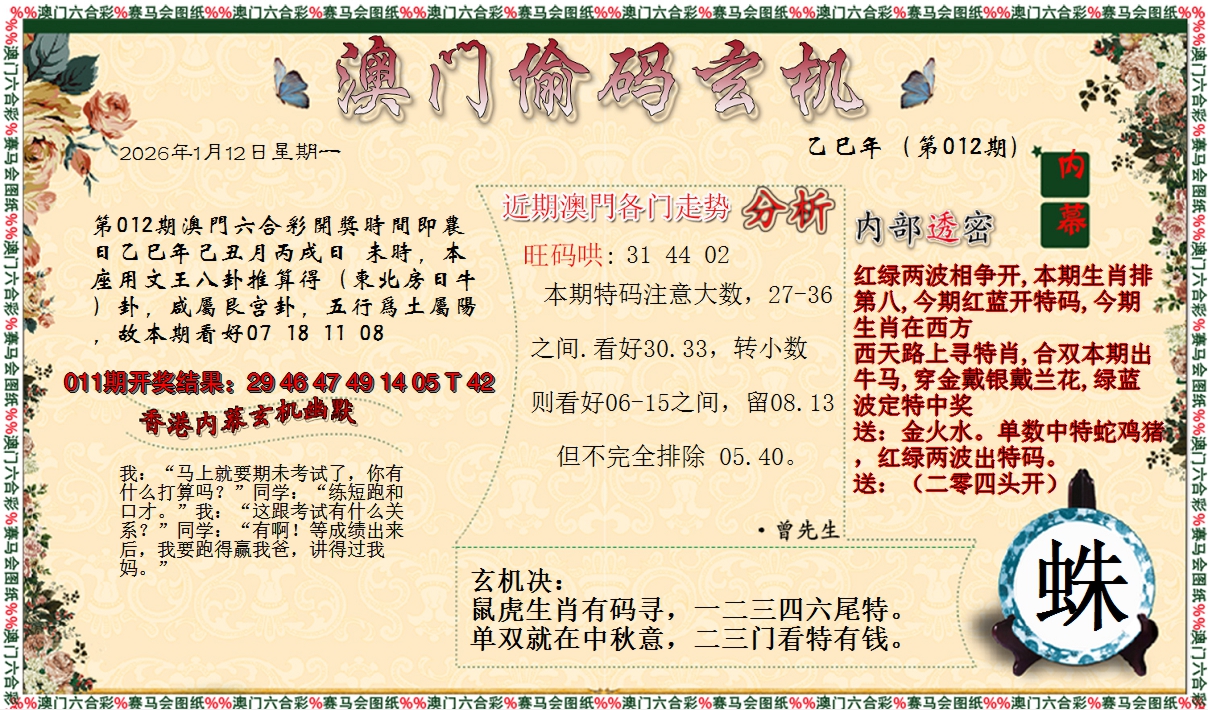 %%澳门六合彩%赛马会图纸%%澳门六合彩%赛马会图纸%%澳门六合彩%赛马会图纸%%澳门六合彩%赛马会图纸%%澳门六合彩%赛马会图纸%%澳门六合彩%赛马会图纸%%
澳门偷码玄机
2026年1月12日星期一
乙巳年（第012期）
内幕
第012期澳門六合彩開獎時間即農
日乙巳年己丑月丙戌日 未時，本
座用文王八卦推算得（東北房日牛
）卦，咸屬艮宫卦，五行爲土屬陽
，故本期看好07 18 11 08
011期开奖结果：29 46 47 49 14 05 T 42
香港内幕玄机幽默
我：“马上就要期末考试了，你有
什么打算吗？”同学：“练短跑和
口才。”我：“这跟考试有什么关
系？”同学：“有啊！等成绩出来
后，我要跑得赢我爸，讲得过我
妈。”
近期澳門各门走势 分析
旺码哄: 31 44 02
本期特码注意大数，27-36
之间.看好30.33，转小数
则看好06-15之间，留08.13
但不完全排除 05.40。
·曾先生
内部透密
红绿两波相争开,本期生肖排
第八,今期红蓝开特码,今期
生肖在西方
西天路上寻特肖,合双本期出
牛马,穿金戴银戴兰花,绿蓝
波定特中奖
送：金火水。单数中特蛇鸡猪
，红绿两波出特码。
送：（二零四头开）
玄机决：
鼠虎生肖有码寻，一二三四六尾特。
单双就在中秋意，二三门看特有钱。
蛛
%%澳门六合彩%赛马会图纸%%澳门六合彩%赛马会图纸%%澳门六合彩%赛马会图纸%%澳门六合彩%赛马会图纸%%澳门六合彩%赛马会图纸%%澳门六合彩%赛马会图纸%%